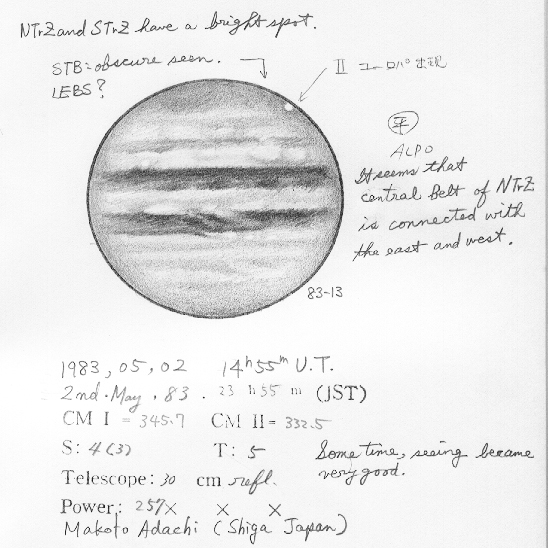 NTrZ and STrZ have a bright spot.
STB: obscure seen.
LEBS?
II ユーロパ出現
平
ALPO
It seems that
central Belt of NTrZ
is connected with
the east and west.
83-13
1983, 05, 02 14h55m U.T.
2nd. May. 83. 23 h 55 m (JST)
CM I = 345.7 CM II = 332.5
S: 4(3) T: 5
Some time, seeing became
very good.
Telescope: 30 cm refl.
Power: 257× × ×
Makoto Adachi (Shiga Japan)